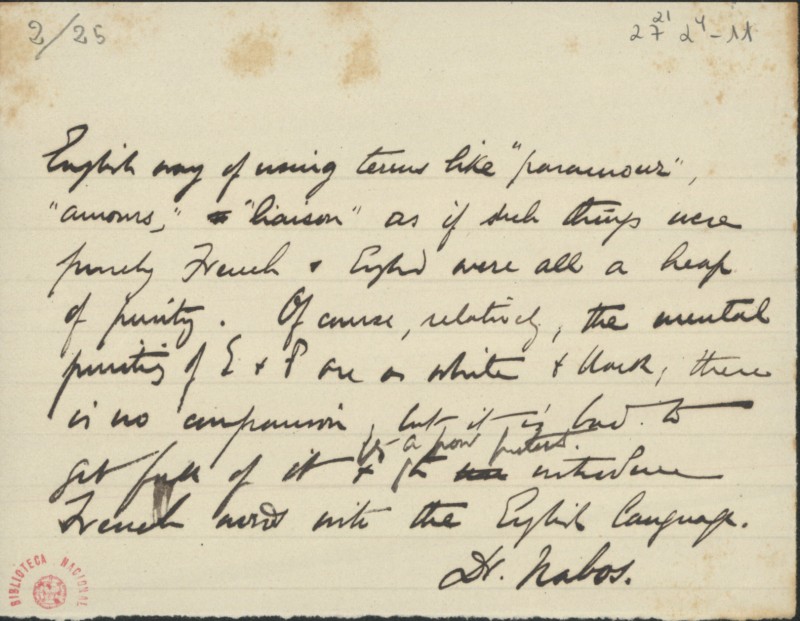 2/25
27 21 24-11
English way of using terms like "paramour",
"amours," "liaison" as if such things were
purely French & English were all a heap
of purity. Of course, relatively, the mental
purities of E & F are as white & black; there
is no comparison, but it is bad to
get full of it & to introduce
a poor
French words into the English language.
Dr. Nabos.
BIBLIOTECA NACIONAL